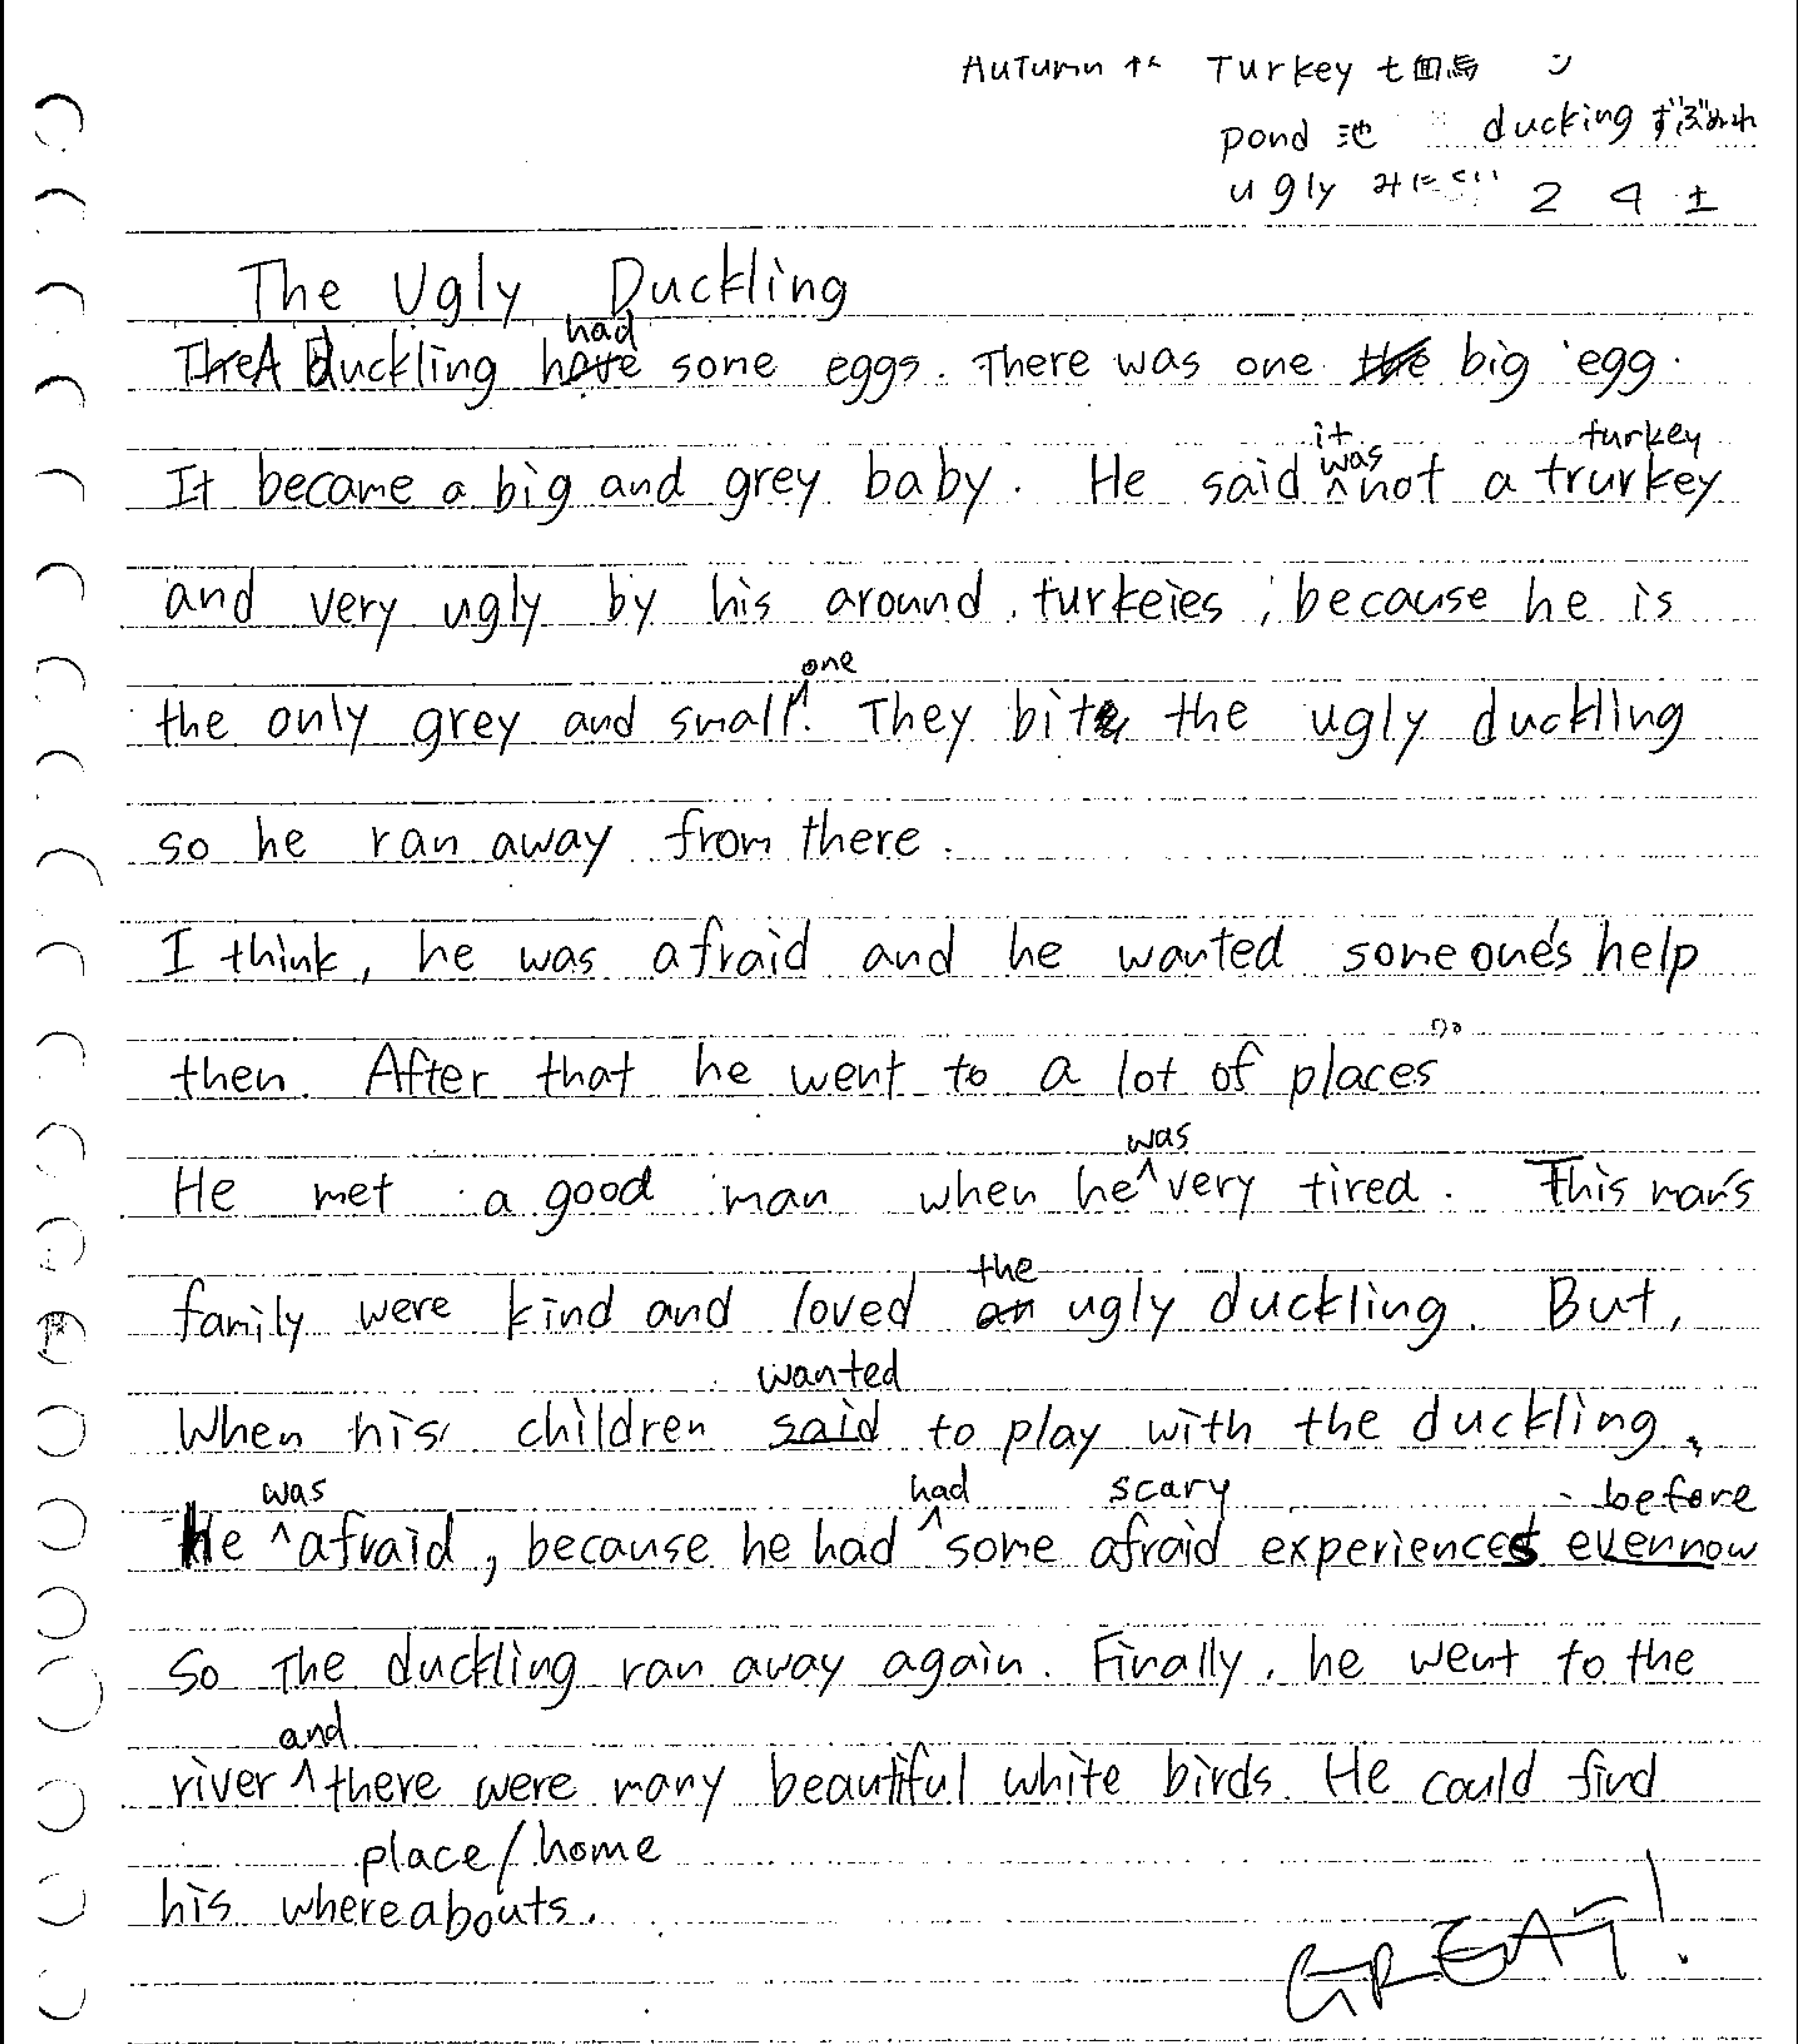 Autumn 秋 Turkey 七面鳥
pond 池 ducking ずぶぬれ
ugly みにくい 2 4 土
The Ugly Duckling
had
The A Duckling have some eggs. There was one the big egg.
it was turkey
It became a big and grey baby. He said ^ not a trurkey
and very ugly by his around turkeies, because he is
one
the only grey and small ^. They bite the ugly duckling
so he ran away from there.
I think, he was afraid and he wanted someone's help
then. After that he went to a lot of places
was
He met a good man when he ^ very tired. This man's
the
family were kind and loved an ugly duckling. But,
wanted
When his children said to play with the duckling,
was had scary before
He ^ afraid, because he had ^ some afraid experiences even now
So The duckling ran away again. Finally, he went to the
and
river ^ there were many beautiful white birds. He could find
place/home
his whereabouts.
GREAT!